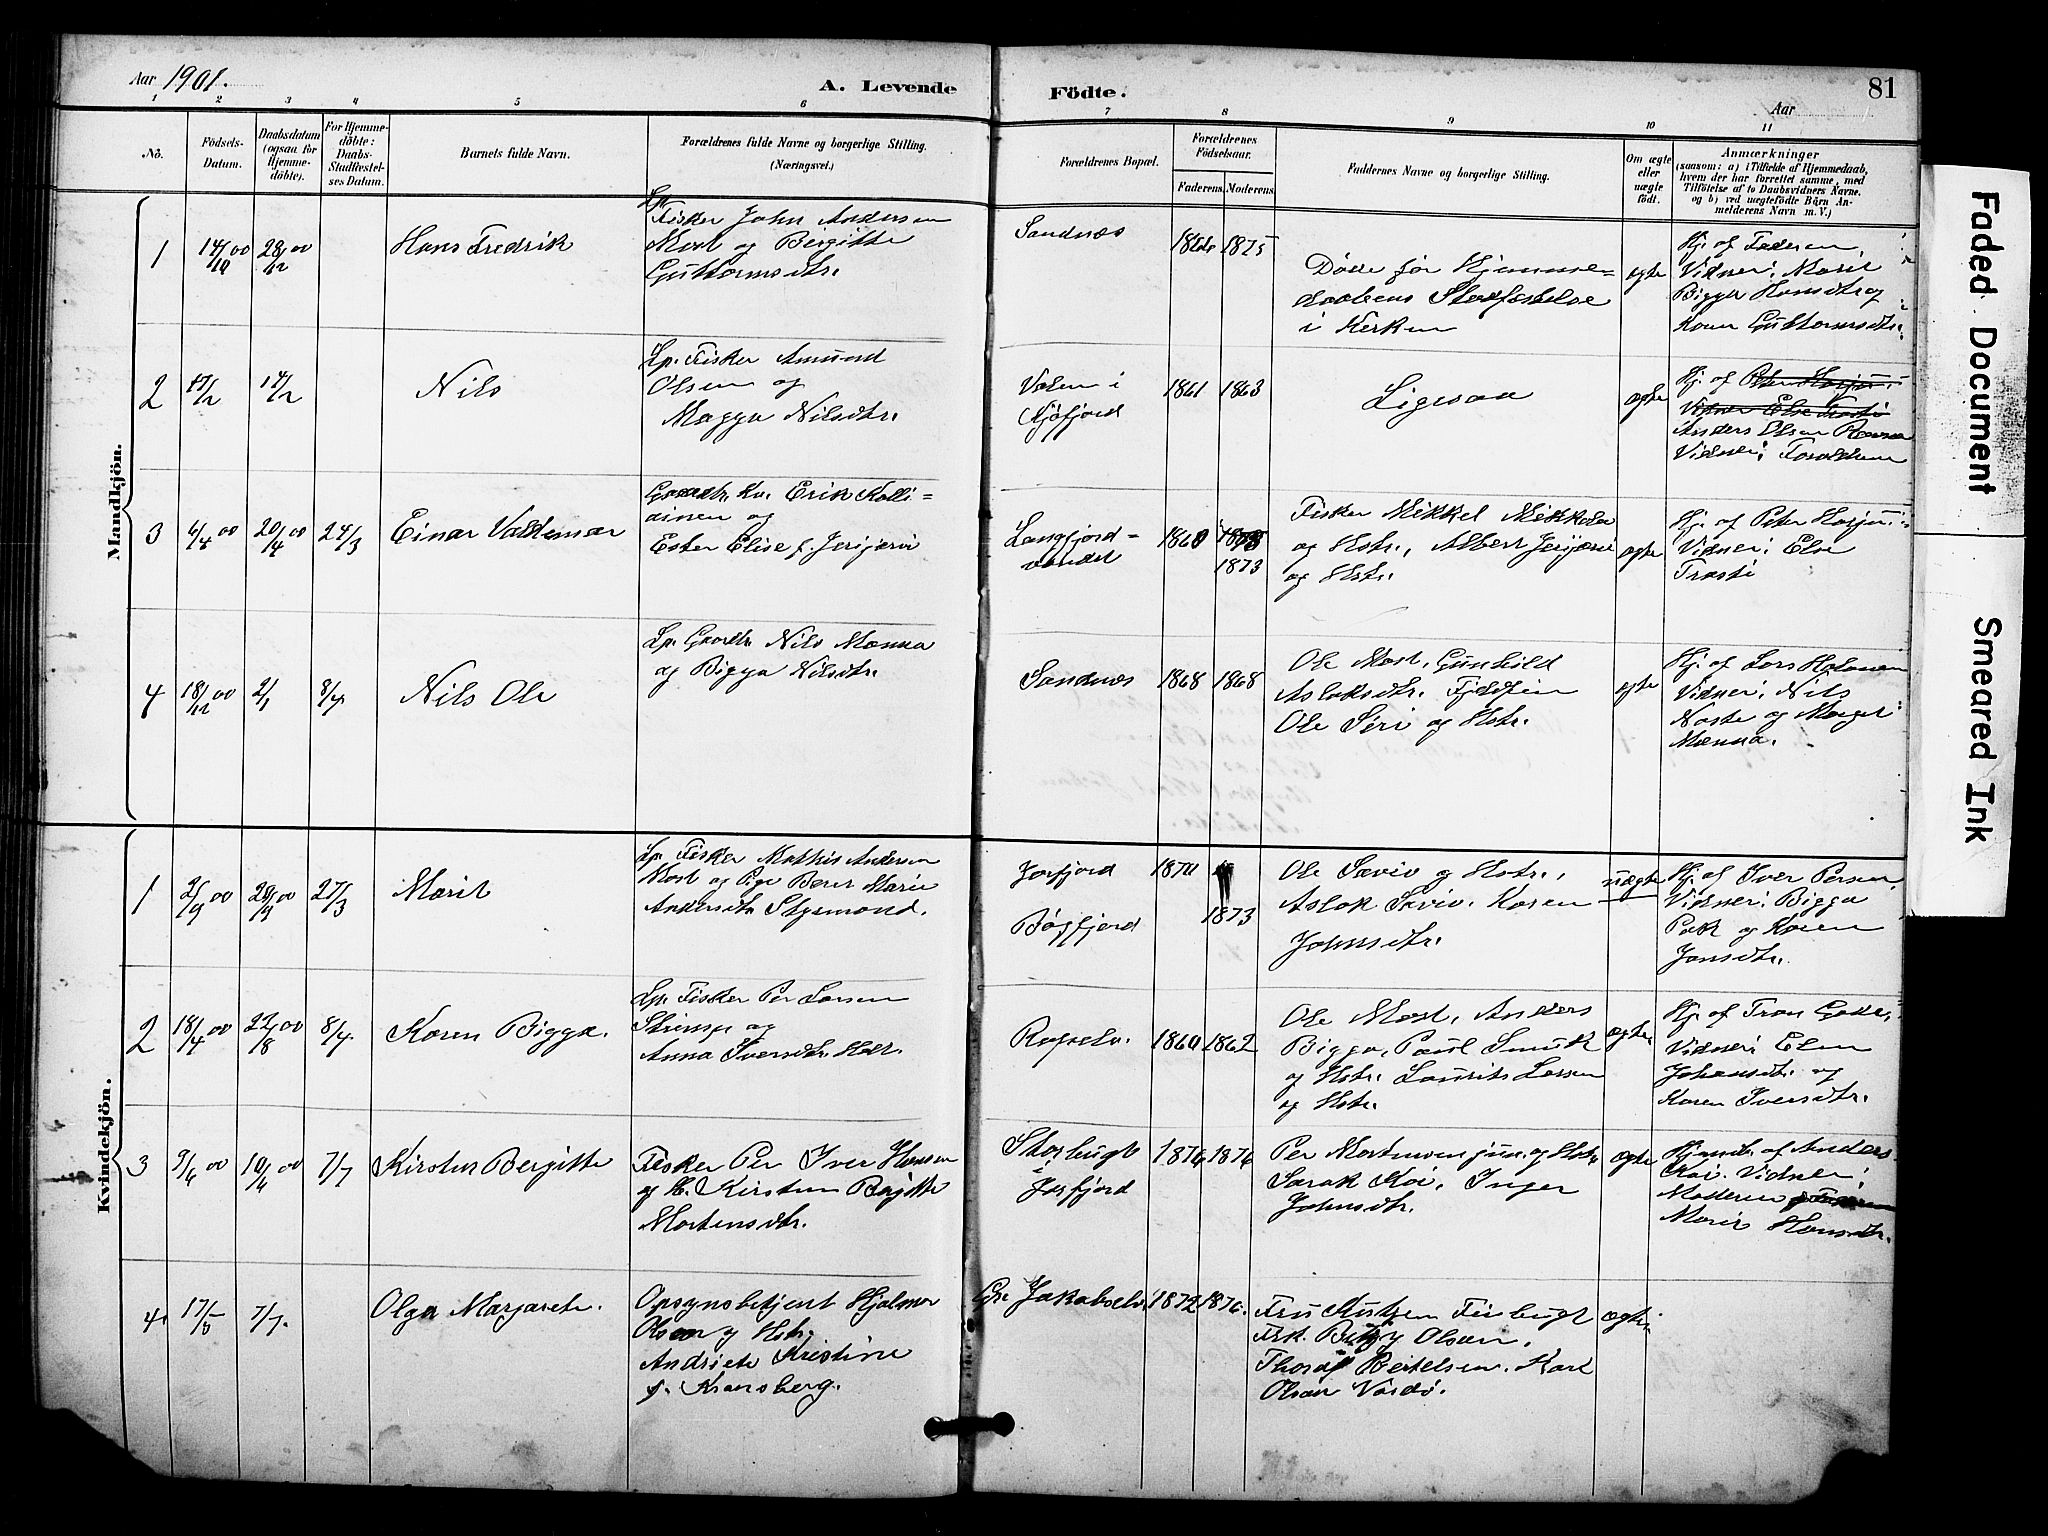 Aar 1901.
A. Levende
Födte.
81
Aar
1 2 3 4 5 6 7 8 9 10 11
No.
Födsels-
Datum.
Daabsdatum
(ogsaa for
Hjemme-
döbte).
For Hjemme-
döbte:
Daabs-
Stadfæstel-
ses Datum.
Barnets fulde Navn.
Forældrenes fulde Navne og borgerlige Stilling.
(Næringsvei.)
Forældrenes Bopæl.
Forældrenes
Födselsaar.
Faderens. Moderens.
Faddernes Navne og borgerlige Stilling.
Om ægte
eller
uægte
födt.
Anmærkninger
(saasom: a) i Tilfælde af Hjemmedaab,
hvem der har forrettet samme, med
Tilföielse af to Daabsvidners Navne,
og b) ved uægtefödte Börn An-
melderens Navn m. V.)
Mandkjön.
1
14/10 00
28/12 00
Hans Fredrik
Lp.
Fisker John Andersen
Most og Bergitte
Guttormsdtr.
Sandnæs
1875
Døde før Hjemme-
daabens Stadfæstelse
i Kirken
ægte
Hj. af Faderen,
Vidner: Marit
Bigga Hansdtr og
Karen Guttormsdtr.
2
14/2
Nils
Lp. Fisker Amund
Olsen og
Magga Nilsdtr.
Kjøfjord
1861
1863
Ligesaa
ægte
Hj. af Peter Harju
Vidner Else Trasti
Anders Olsen
Vidner: Forældrene
3
6/4 00
20/4 00
24/3
Einar Valdemar
Gaardbr. Kv. Erik Kalli-
ainen og
Ester Elise f. Jerijærvi
Langfjord-
vandet
1860
1873
Fisker Mikkel Mikkelsen
og Hstr., Albert Jerijærvi
og Hstr.
ægte
Hj. af Peter Harju
Vidner: Else
Trasti
4
18/12 00
2/1
8/4
Nils Ole
Lp. Gaardbr. Nils Mænna
og Bigga Nilsdtr.
Sandnæs
1868
1868
Ole Most, Gunhild
Aslaksdtr.
Ole Siri og Hstr.
ægte
Hj. af Lars
Vidner: Nils
Naste og Marget
Mænna.
Kvindekjön.
1
2/9 00
27/3
Marit
Lp. Fisker Mathis Andersen
Most og Pige Berit Marie
Andersdtr Stysmond.
Jarfjord
Bøgfjord
1870
1873
Ole Savio og Hstr.,
Aslak Savio, Karen
Johnsdtr.
uægte
Hj. af Iver Persen,
Vidner: Bigga
Pak og Karen
Jonsdtr.
2
18/4 00
22/8 00
8/4
Karen Bigga
Lp. Fisker Per Larsen
Strimp og
Anna Iversdtr.
1860
1862
Ole Most, Anders
Bigga, Paul Smuk
og Hstr. Laurits Larsen
og Hstr.
ægte
Hj. af Tran
Vidner: Elen
Johansdtr. og
Karen Iversdtr.
3
9/6 00
10/6 00
7/7
Kirsten Bergitte
Fisker Per Iver Hansen
og H. Kirsten Bergitte
Mortensdtr.
Storbugt
i Jarfjord
1874
1876
Per Mortensen jun. og Hstr
Sarak Koi, Inger
Johnsdtr.
ægte
Hjemdb. af Anders
Koi. Vidner:
Moderen
Marit Hansdtr.
4
17/5
7/7.
Olga Margarete.
Opsynsbetjent Hjalmar
Olsen og Hstr.
Andriete Kristine
f. Kransberg.
Gr. Jakobselv
1872
1876.
Fru
Frk. Betzy Olsen,
Thoralf Bertelsen. Karl
Olsen Vardø.
ægte
Faded Document
Smeared Ink